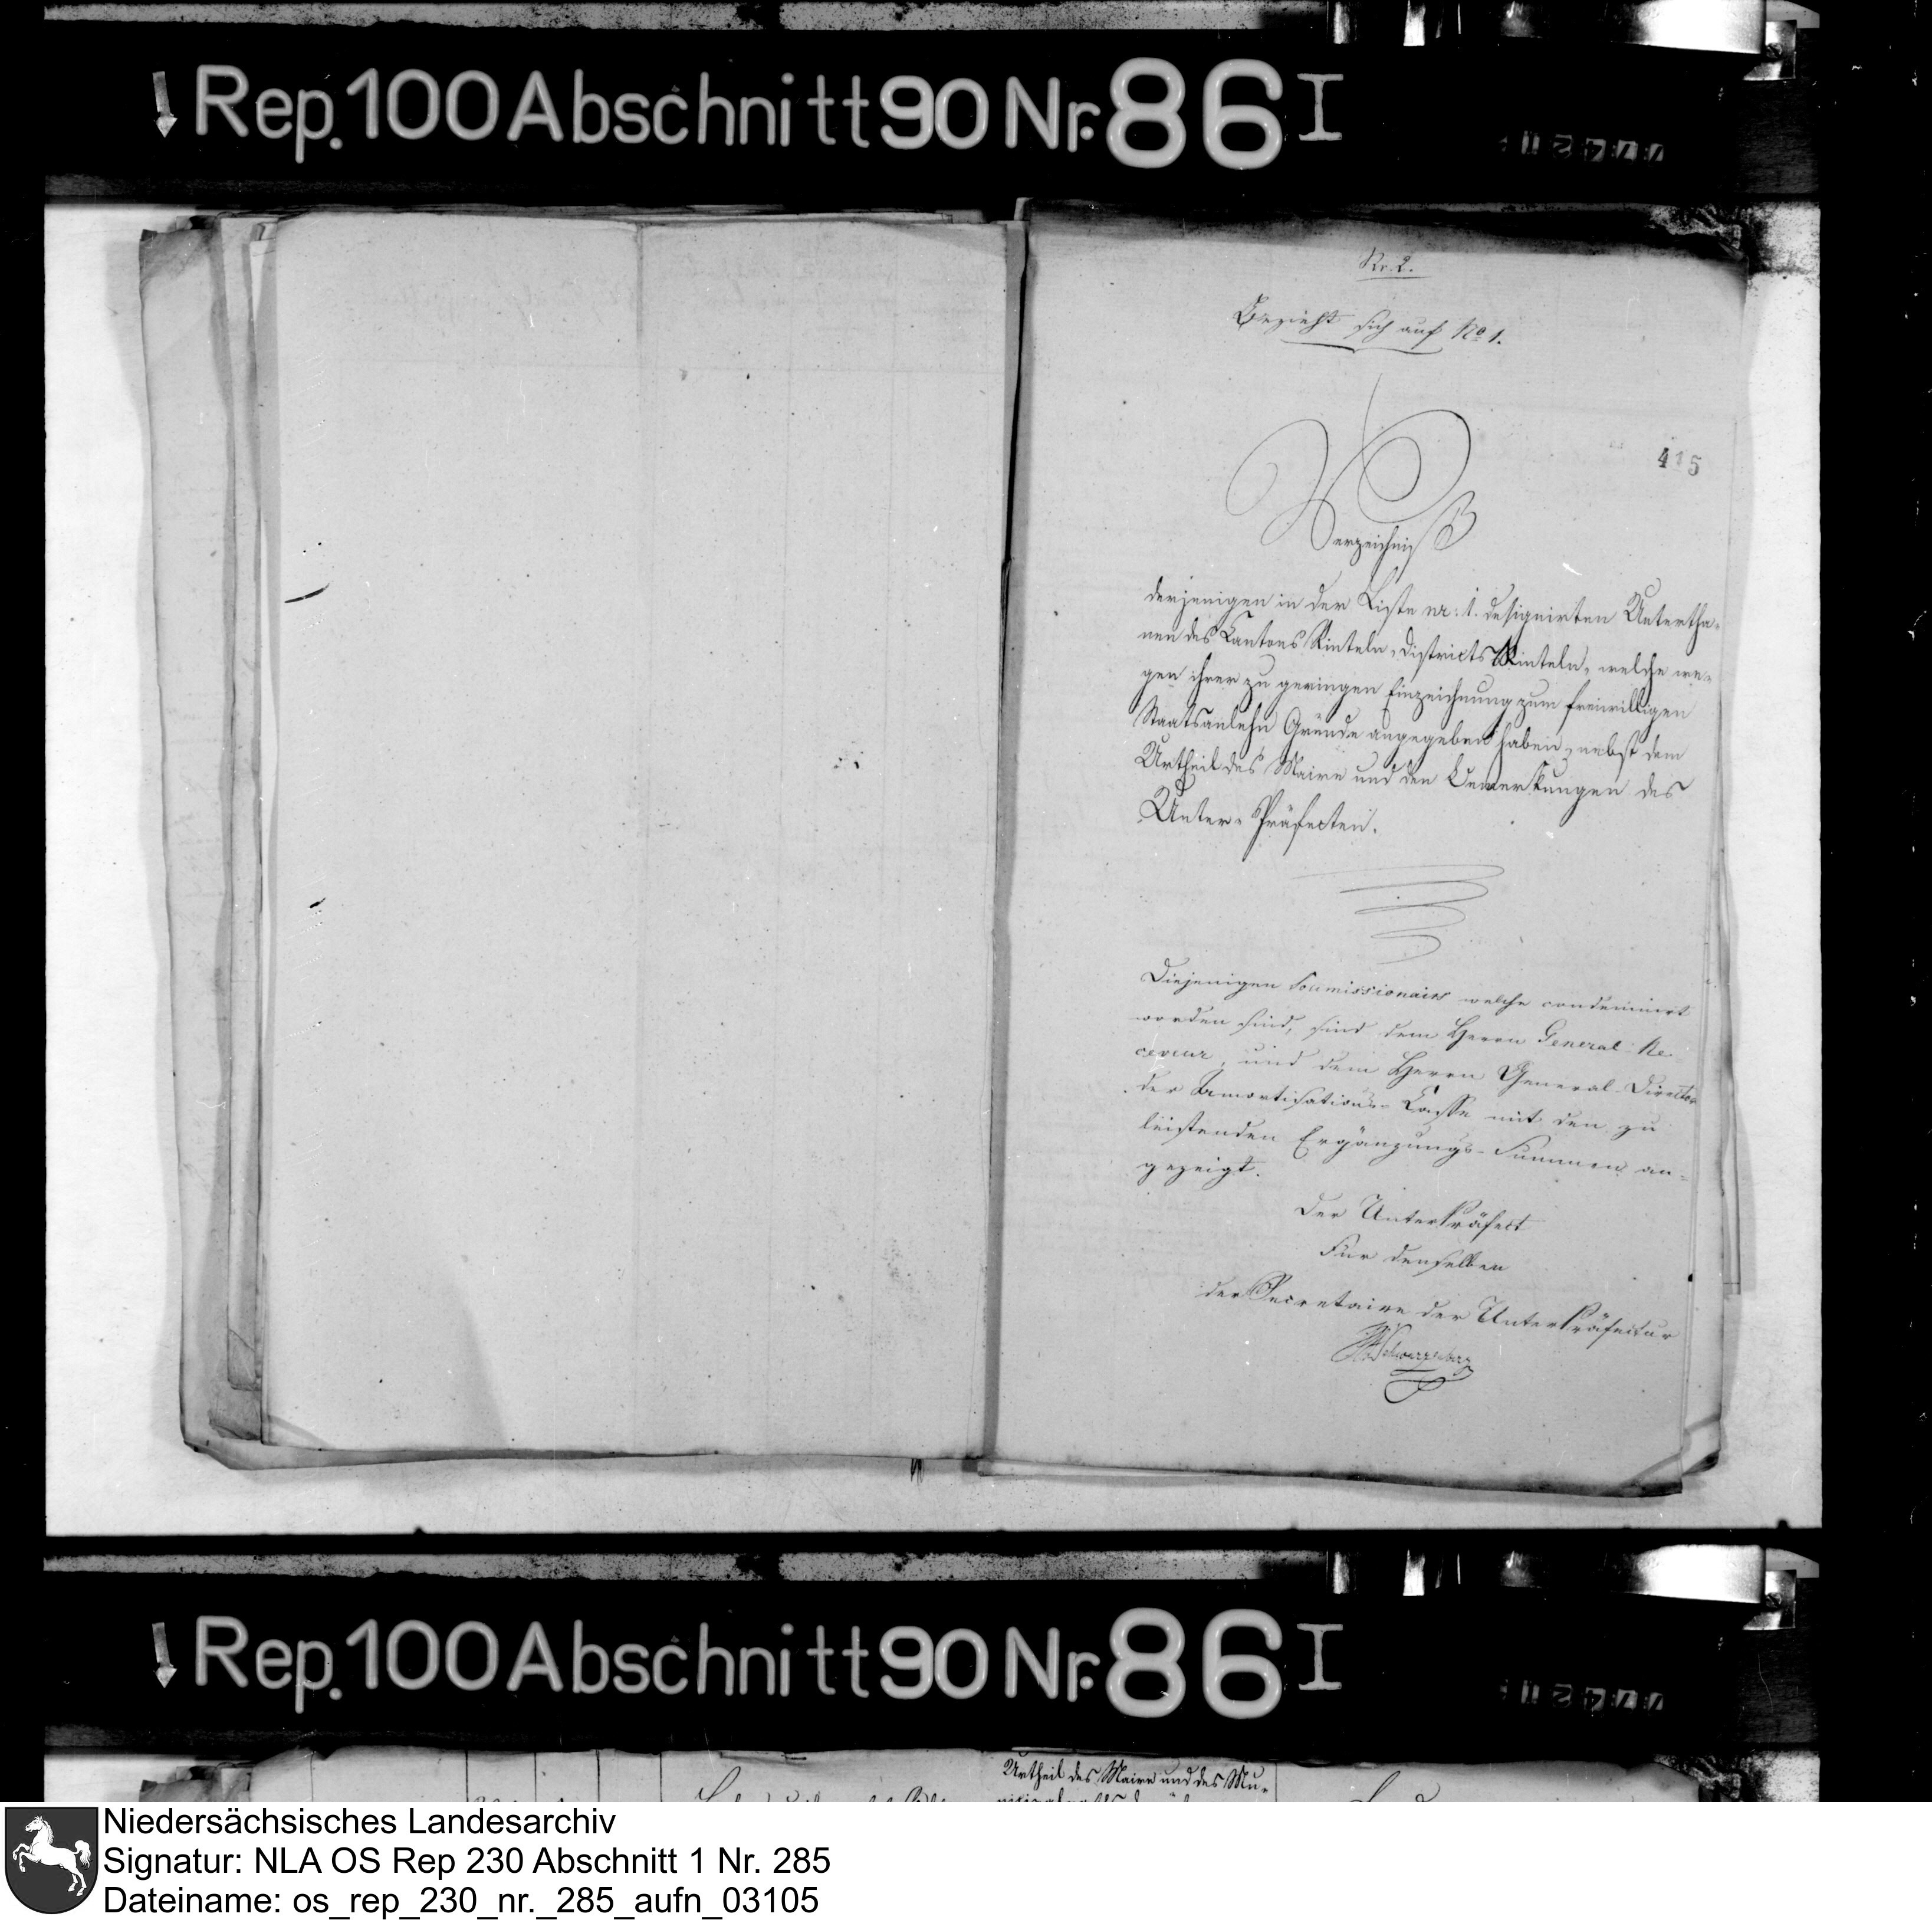 Rep. 100 Abschnitt 90 Nr. 86 I
Nr. 2.
Bezieht sich auf No 1.
415
Verzeichniß
derjenigen in der Liste nr: 1. designirten Untertha-
nen des Cantons Rinteln, Districts Rinteln, welche we-
gen ihrer zu geringen Einzeichnung zum freiwilligen
Staatsanlehn Gründe angegeben haben, nebst dem
Urtheil des Maire und den Bemerkungen des
Unter-Präfecten.
Diejenigen Soumissionairs welche condemnirt
worden sind, sind dem Herrn General-Re-
ceveur, und dem Herrn General-Director
der Amortisations-Casse mit den zu
leistenden Ergänzungs-Summen an-
gezeigt.
Der UnterPräfect
Für denselben
der Secretaire der UnterPräfectur
Rep. 100 Abschnitt 90 Nr. 86 I
Urtheil des Maire und des Mu-
Niedersächsisches Landesarchiv
Signatur: NLA OS Rep 230 Abschnitt 1 Nr. 285
Dateiname: os_rep_230_nr._285_aufn_03105